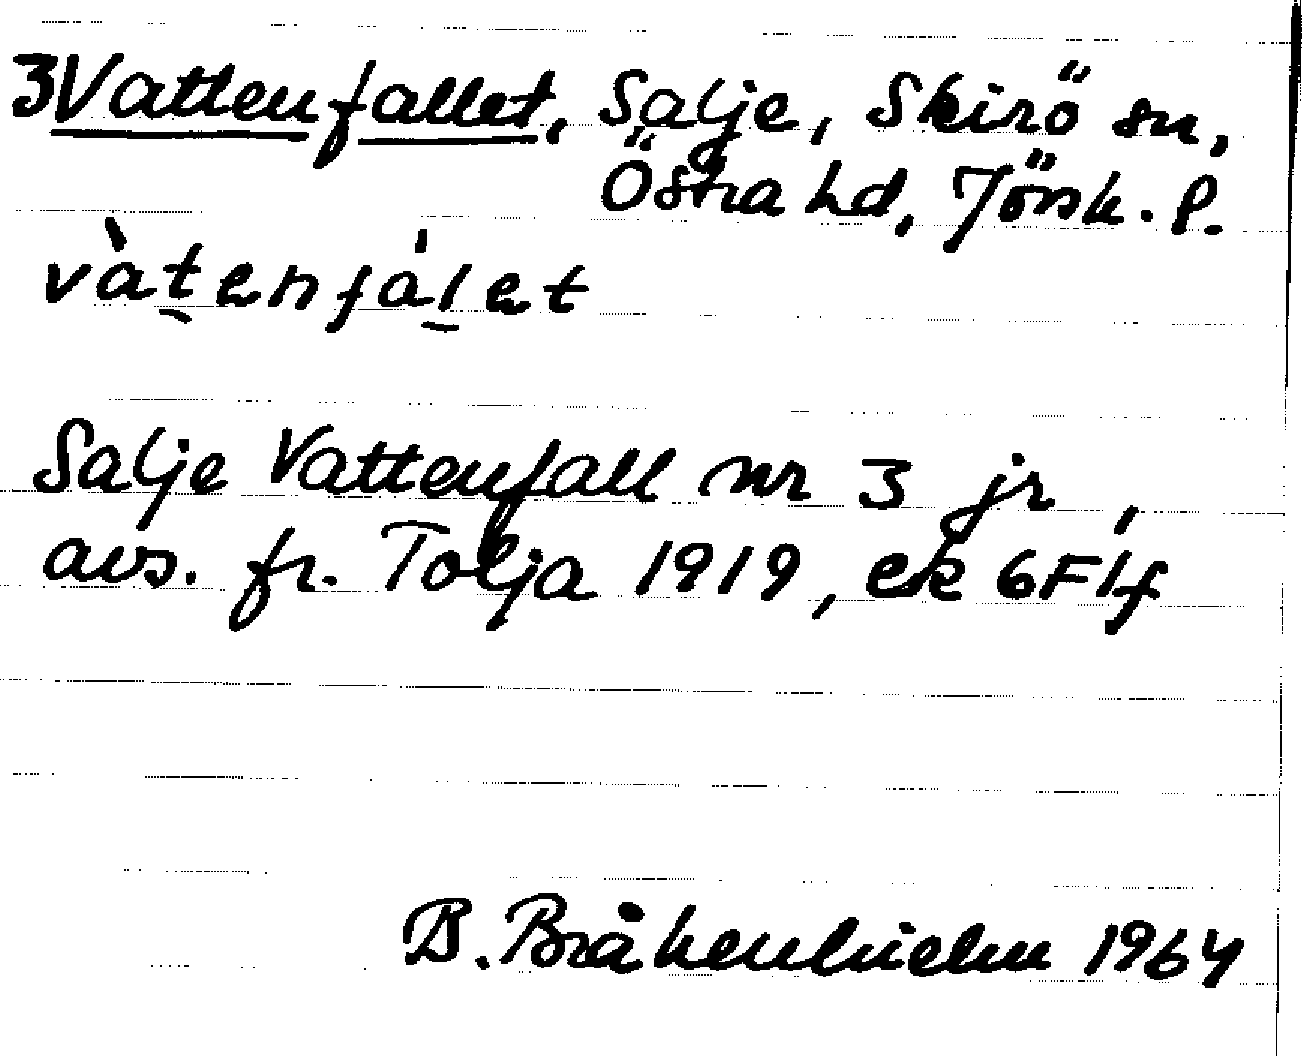 3 Vattenfallet, Salje, Skirö sn,
Östra hd, Jönk. l.
vàt̠enfál̠et
Salje Vattenfall nr 3 jr,
avs. fr. Tolja 1919, ek 6F1f
B. Bråkenhielm 1964